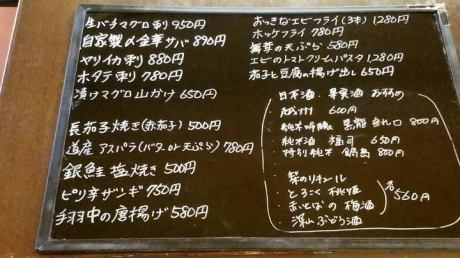 生バチマグロ刺り 950円
自家製〆金華サバ 890円
ヤリイカ刺り 880円
ホタテ刺り 780円
漬けマグロ山かけ 650円
長茄子焼き(赤茄子) 500円
道産アスパラ(バター or 天ぷら) 780円
銀鮭 塩焼き 500円
ピリ辛ザンギ 750円
手羽中の唐揚げ 580円
おっきなエビフライ(3本) 1,280円
ホッケフライ 780円
舞茸の天ぷら 580円
エビのトマトクリームパスタ 1,280円
茄子と豆腐の揚げ出し 650円
日本酒 果実酒 おすすめ
600円
純米吟醸 黒龍 垂れ口 800円
純米酒 福司 650円
特別純米 鍋島 800円
梨のリキュール
とろこく 桃姫
あいとなの 梅酒
深山ぶどう酒
各560円